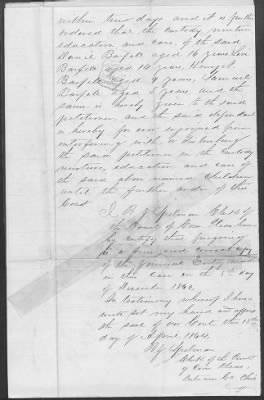 within three days and it is further
ordered that the custody nurture
education and care of the said
Daniel Barfelt aged 16 years
Barfelt aged 14 years Henry
Barfelt aged 9 years, Samuel
Barfelt aged 5 years, and the
same is hereby given to the said
petitioner, and the said defendant
is hereby for ever enjoined from
interfering with or disturbing
the said petitioner in the custody
nurture, education and care of
the said above named children
until the further order of this
Court
I R J Spelman Clerk of
the Court of Com Pleas here
by certify the foregoing
to be a true and correct copy
of the Journal Entry made
in this case on the day
of December 1862
In testimony whereof I here
unto set my hand and affixed
the seal of our Court this 15th
day of April 1864
R J Spelman
Clerk of the Court
of Com Pleas
Co Ohio